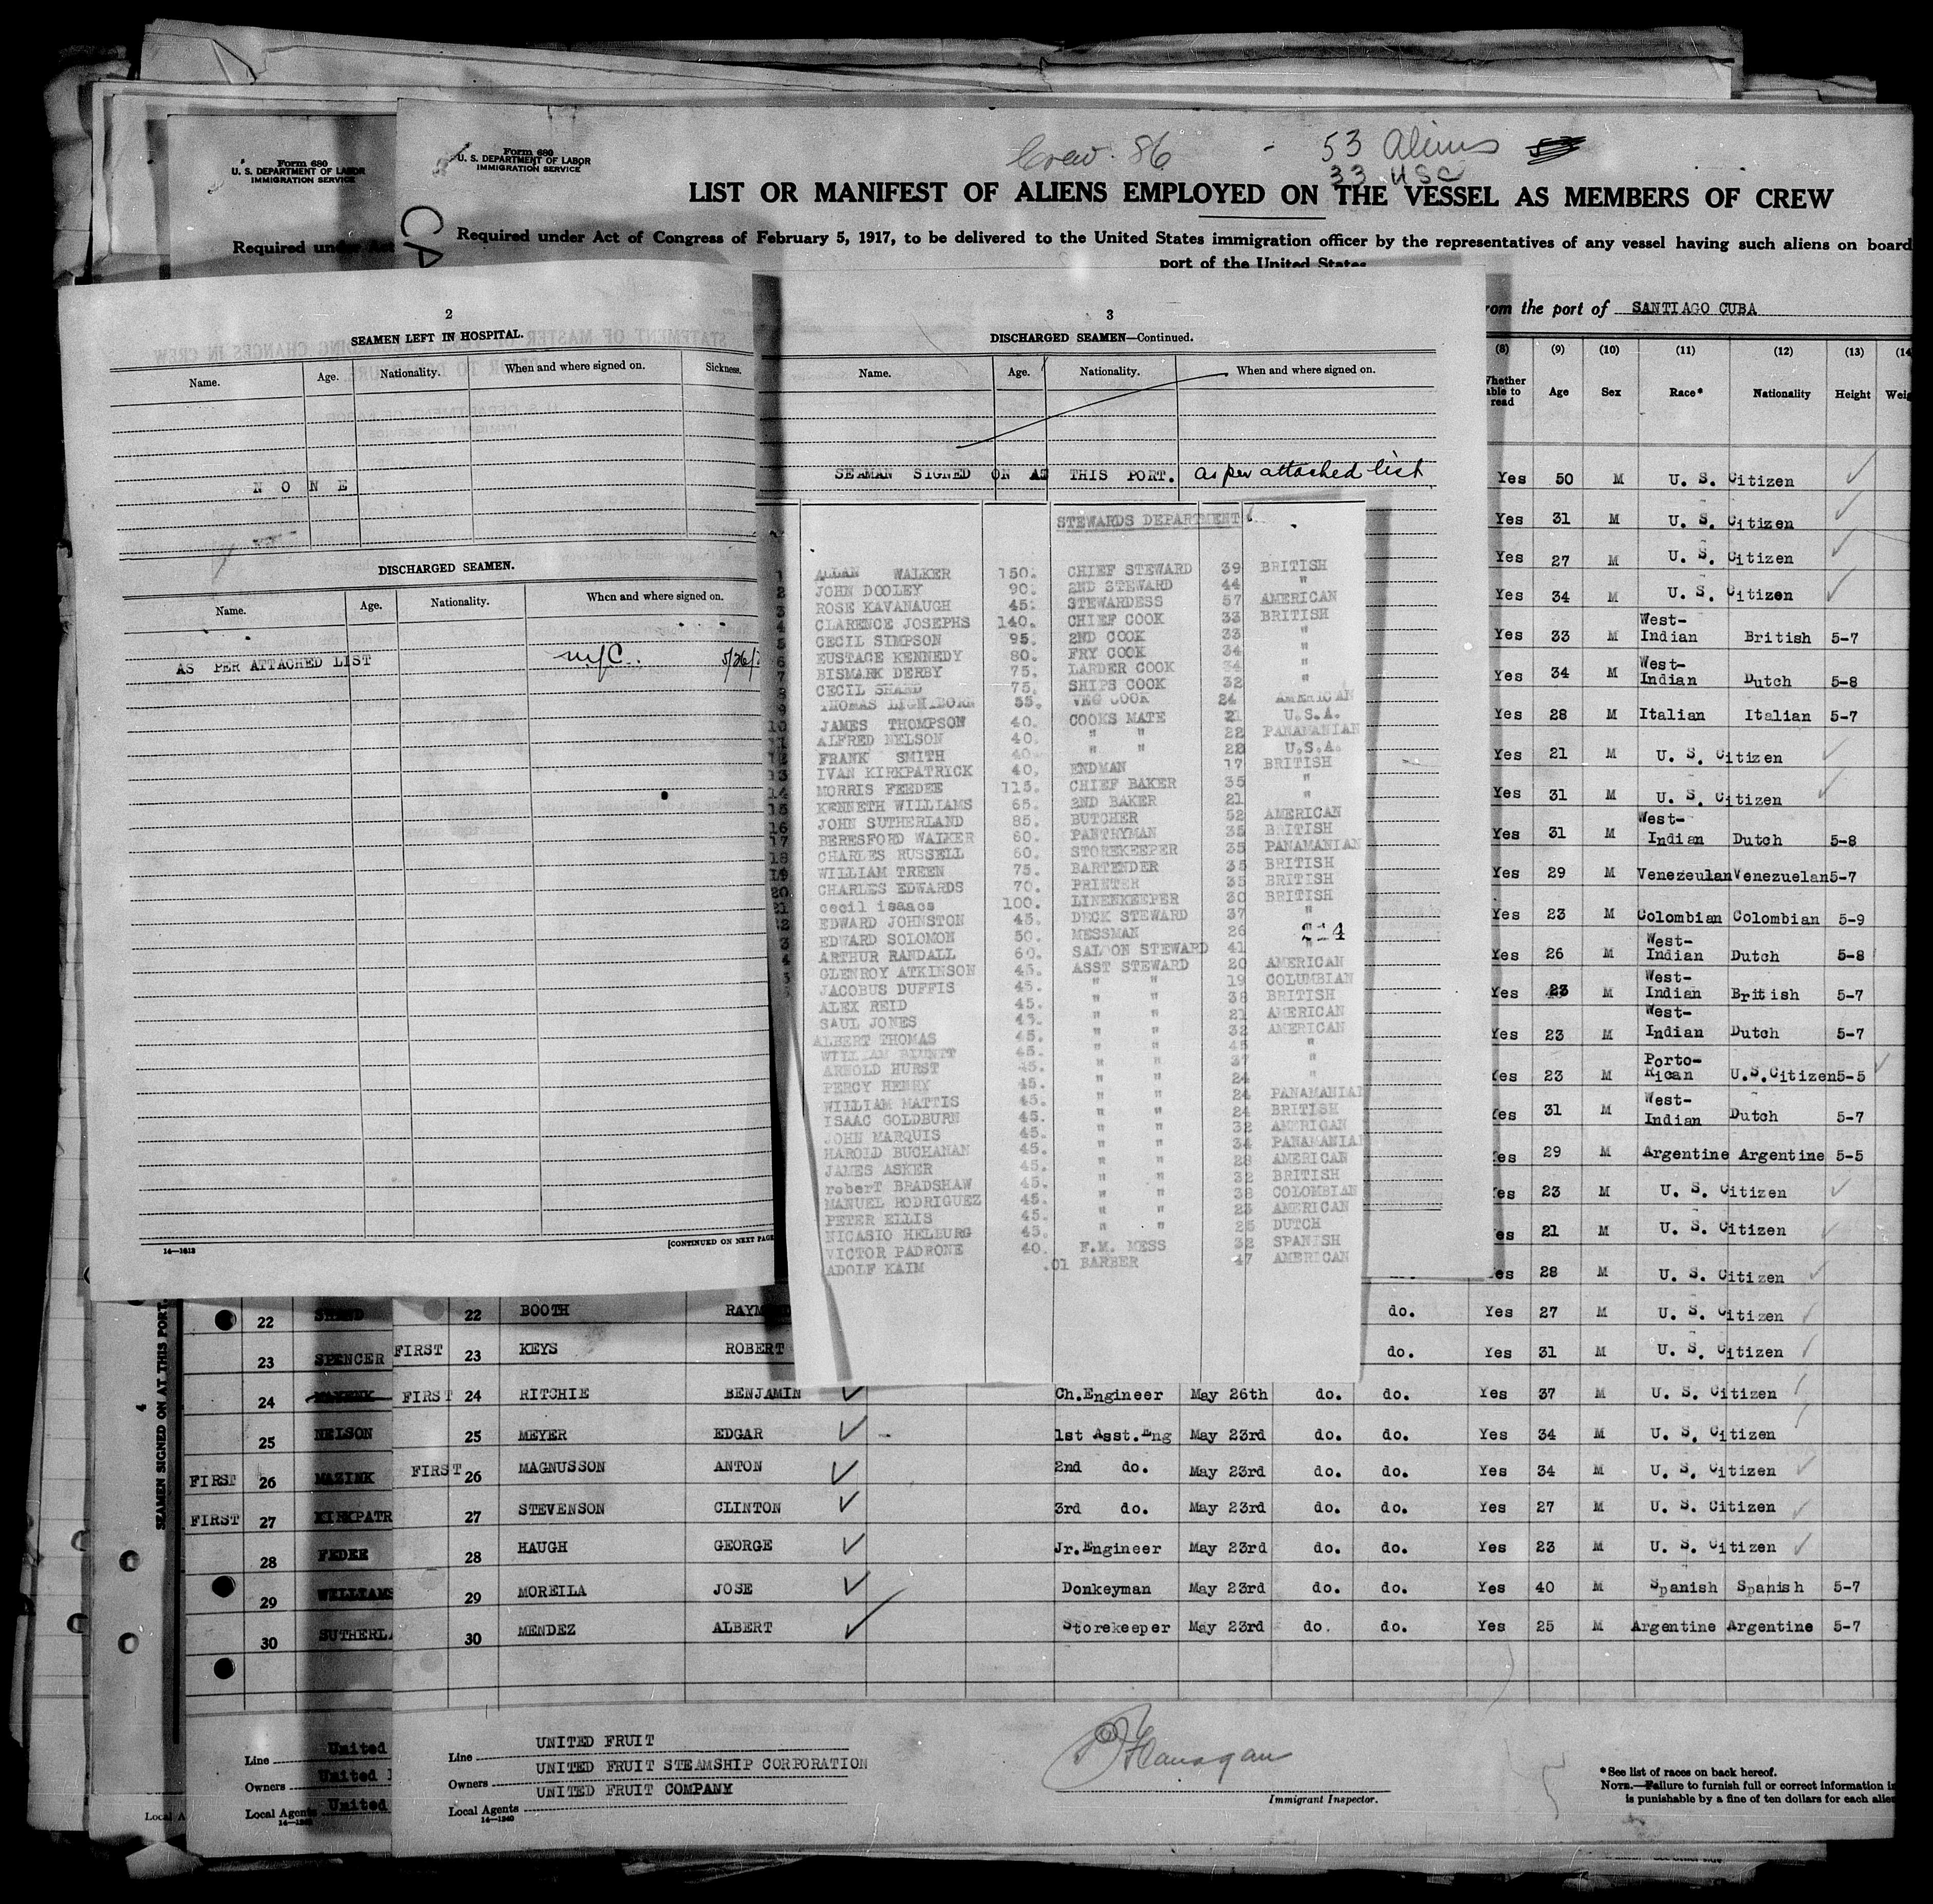 Form 680
U. S. DEPARTMENT OF LABOR
IMMIGRATION SERVICE
Required under Act
Form 680
U. S. DEPARTMENT OF LABOR
IMMIGRATION SERVICE
Crew 86 - 53 Aliens
33 USC
LIST OR MANIFEST OF ALIENS EMPLOYED ON THE VESSEL AS MEMBERS OF CREW
Required under Act of Congress of February 5, 1917, to be delivered to the United States immigration officer by the representatives of any vessel having such aliens on board
port of the United States
from the port of SANTIAGO CUBA
2
SEAMEN LEFT IN HOSPITAL.
Name. Age. Nationality. When and where signed on. Sickness.
N O N E
DISCHARGED SEAMEN.
Name. Age. Nationality. When and where signed on.
AS PER ATTACHED LIST 5/26/
14—1613
[CONTINUED ON NEXT PAGE
3
DISCHARGED SEAMEN—Continued.
Name. Age. Nationality. When and where signed on.
SEAMAN SIGNED ON AT THIS PORT. as per attached list
STEWARDS DEPARTMENT
1 ALLAN WALKER 150. CHIEF STEWARD 39 BRITISH
2 JOHN DOOLEY 90. 2ND STEWARD 44 "
3 ROSE KAVANAUGH 45. STEWARDESS 57 AMERICAN
4 CLARENCE JOSEPHS 140. CHIEF COOK 33 BRITISH
5 CECIL SIMPSON 95. 2ND COOK 33 "
6 EUSTACE KENNEDY 80. FRY COOK 34 "
7 BISMARK DERBY 75. LARDER COOK 34 "
8 CECIL SHAND 75. SHIPS COOK 32 "
9 THOMAS LIGHTBORN 55. VEG COOK 24 AMERICAN
10 JAMES THOMPSON 40. COOKS MATE 21 U.S.A.
11 ALFRED NELSON 40. " " 22 PANAMANIAN
12 FRANK SMITH 40. " " 22 U.S.A.
13 IVAN KIRKPATRICK 40. ENDMAN 17 BRITISH
14 MORRIS FEEDEE 115. CHIEF BAKER 35 "
15 KENNETH WILLIAMS 65. 2ND BAKER 21 "
16 JOHN SUTHERLAND 85. BUTCHER 52 AMERICAN
17 BERESFORD WALKER 60. PANTRYMAN 35 BRITISH
18 CHARLES RUSSELL 60. STOREKEEPER 35 PANAMANIAN
19 WILLIAM TREEN 75. BARTENDER 35 BRITISH
20 CHARLES EDWARDS 70. PRINTER 35 BRITISH
21 cecil isaacs 100. LINENKEEPER 30 BRITISH
2 EDWARD JOHNSTON 45. DECK STEWARD 37 "
3 EDWARD SOLOMON 50. MESSMAN 26
4 ARTHUR RANDALL 60. SALOON STEWARD 41
GLENROY ATKINSON 45. ASST STEWARD 20 AMERICAN
JACOBUS DUFFIS 45. " " 19 COLUMBIAN
ALEX REID 45. " " 38 BRITISH
SAUL JONES 45. " " 21 AMERICAN
ALBERT THOMAS 45. " " 32 AMERICAN
WILLIAM BLUNTT 45. " " 45 "
ARNOLD HURST 45. " " 37 "
PERCY HENRY 45. " " 24 "
WILLIAM MATTIS 45. " " 24 PANAMANIAN
ISAAC GOLDBURN 45. " " 24 BRITISH
JOHN MARQUIS 45. " " 32 AMERICAN
HAROLD BUCHANAN 45. " " 34 PANAMANIAN
JAMES ASKER 45. " " 28 AMERICAN
roberT BRADSHAW 45. " " 32 BRITISH
MANUEL RODRIGUEZ 45. " " 38 COLOMBIAN
PETER ELLIS 45. " " 23 AMERICAN
NICASIO HELBURG 45. " " 25 DUTCH
VICTOR PADRONE 40. F.M. MESS 32 SPANISH
ADOLF KAIM .01 BARBER 47 AMERICAN
(8) (9) (10) (11) (12) (13) (14
Whether able to read Age Sex Race* Nationality Height Weig
Yes 50 M U. S. Citizen
Yes 31 M U. S. Citizen
Yes 27 M U. S. Citizen
Yes 34 M U. S. Citizen
Yes 33 M West-Indian British 5-7
Yes 34 M West-Indian Dutch 5-8
Yes 28 M Italian Italian 5-7
Yes 21 M U. S. Citizen
Yes 31 M U. S. Citizen
Yes 31 M West-Indian Dutch 5-8
Yes 29 M Venezeulan Venezuelan 5-7
Yes 23 M Colombian Colombian 5-9
Yes 26 M West-Indian Dutch 5-8
Yes 23 M West-Indian British 5-7
Yes 23 M West-Indian Dutch 5-7
Yes 23 M Porto-Rican U.S.Citizen 5-5
Yes 31 M West-Indian Dutch 5-7
Yes 29 M Argentine Argentine 5-5
Yes 23 M U. S. Citizen
Yes 21 M U. S. Citizen
Yes 28 M U. S. Citizen
22 BOOTH RAYMOND do. Yes 27 M U. S. Citizen
FIRST 23 KEYS ROBERT do. Yes 31 M U. S. Citizen
FIRST 24 RITCHIE BENJAMIN Ch.Engineer May 26th do. do. Yes 37 M U. S. Citizen
25 MEYER EDGAR 1st Asst.Eng May 23rd do. do. Yes 34 M U. S. Citizen
FIRST 26 MAGNUSSON ANTON 2nd do. May 23rd do. do. Yes 34 M U. S. Citizen
27 STEVENSON CLINTON 3rd do. May 23rd do. do. Yes 27 M U. S. Citizen
28 HAUGH GEORGE Jr.Engineer May 23rd do. do. Yes 23 M U. S. Citizen
29 MOREILA JOSE Donkeyman May 23rd do. do. Yes 40 M Spanish Spanish 5-7
30 MENDEZ ALBERT Storekeeper May 23rd do. do. Yes 25 M Argentine Argentine 5-7
4
SEAMEN SIGNED ON AT THIS PORT.
22 SHAND
23 SPENCER
24
25 NELSON
FIRST 26 MAZINK
FIRST 27 KIRKPATR
28 FEDEE
29 WILLIAMS
30 SUTHERLA
Line United
Owners United
Local Agents United
Local A
Line UNITED FRUIT
Owners UNITED FRUIT STEAMSHIP CORPORATION
Local Agents UNITED FRUIT COMPANY
14—1240
Flanagan
Immigrant Inspector.
*See list of races on back hereof.
NOTE.—Failure to furnish full or correct information
is punishable by a fine of ten dollars for each alien